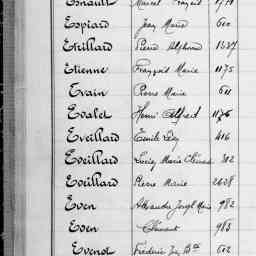 Esnault Marcel François 1791
Espiard Jean Marie 600
Etrillard Pierre Alphonse 1337
Etienne François Marie 1175
Evain Pierre Marie 611
Evalet Henri Alfred 1126
Eveillard Emile Léon 416
Eveillard Louis Marie Clément 302
Eveillard Pierre Marie 2608
Even Alexandre Joseph Marie 982
Even Clément 983
Evenot Frédéric Bte 602